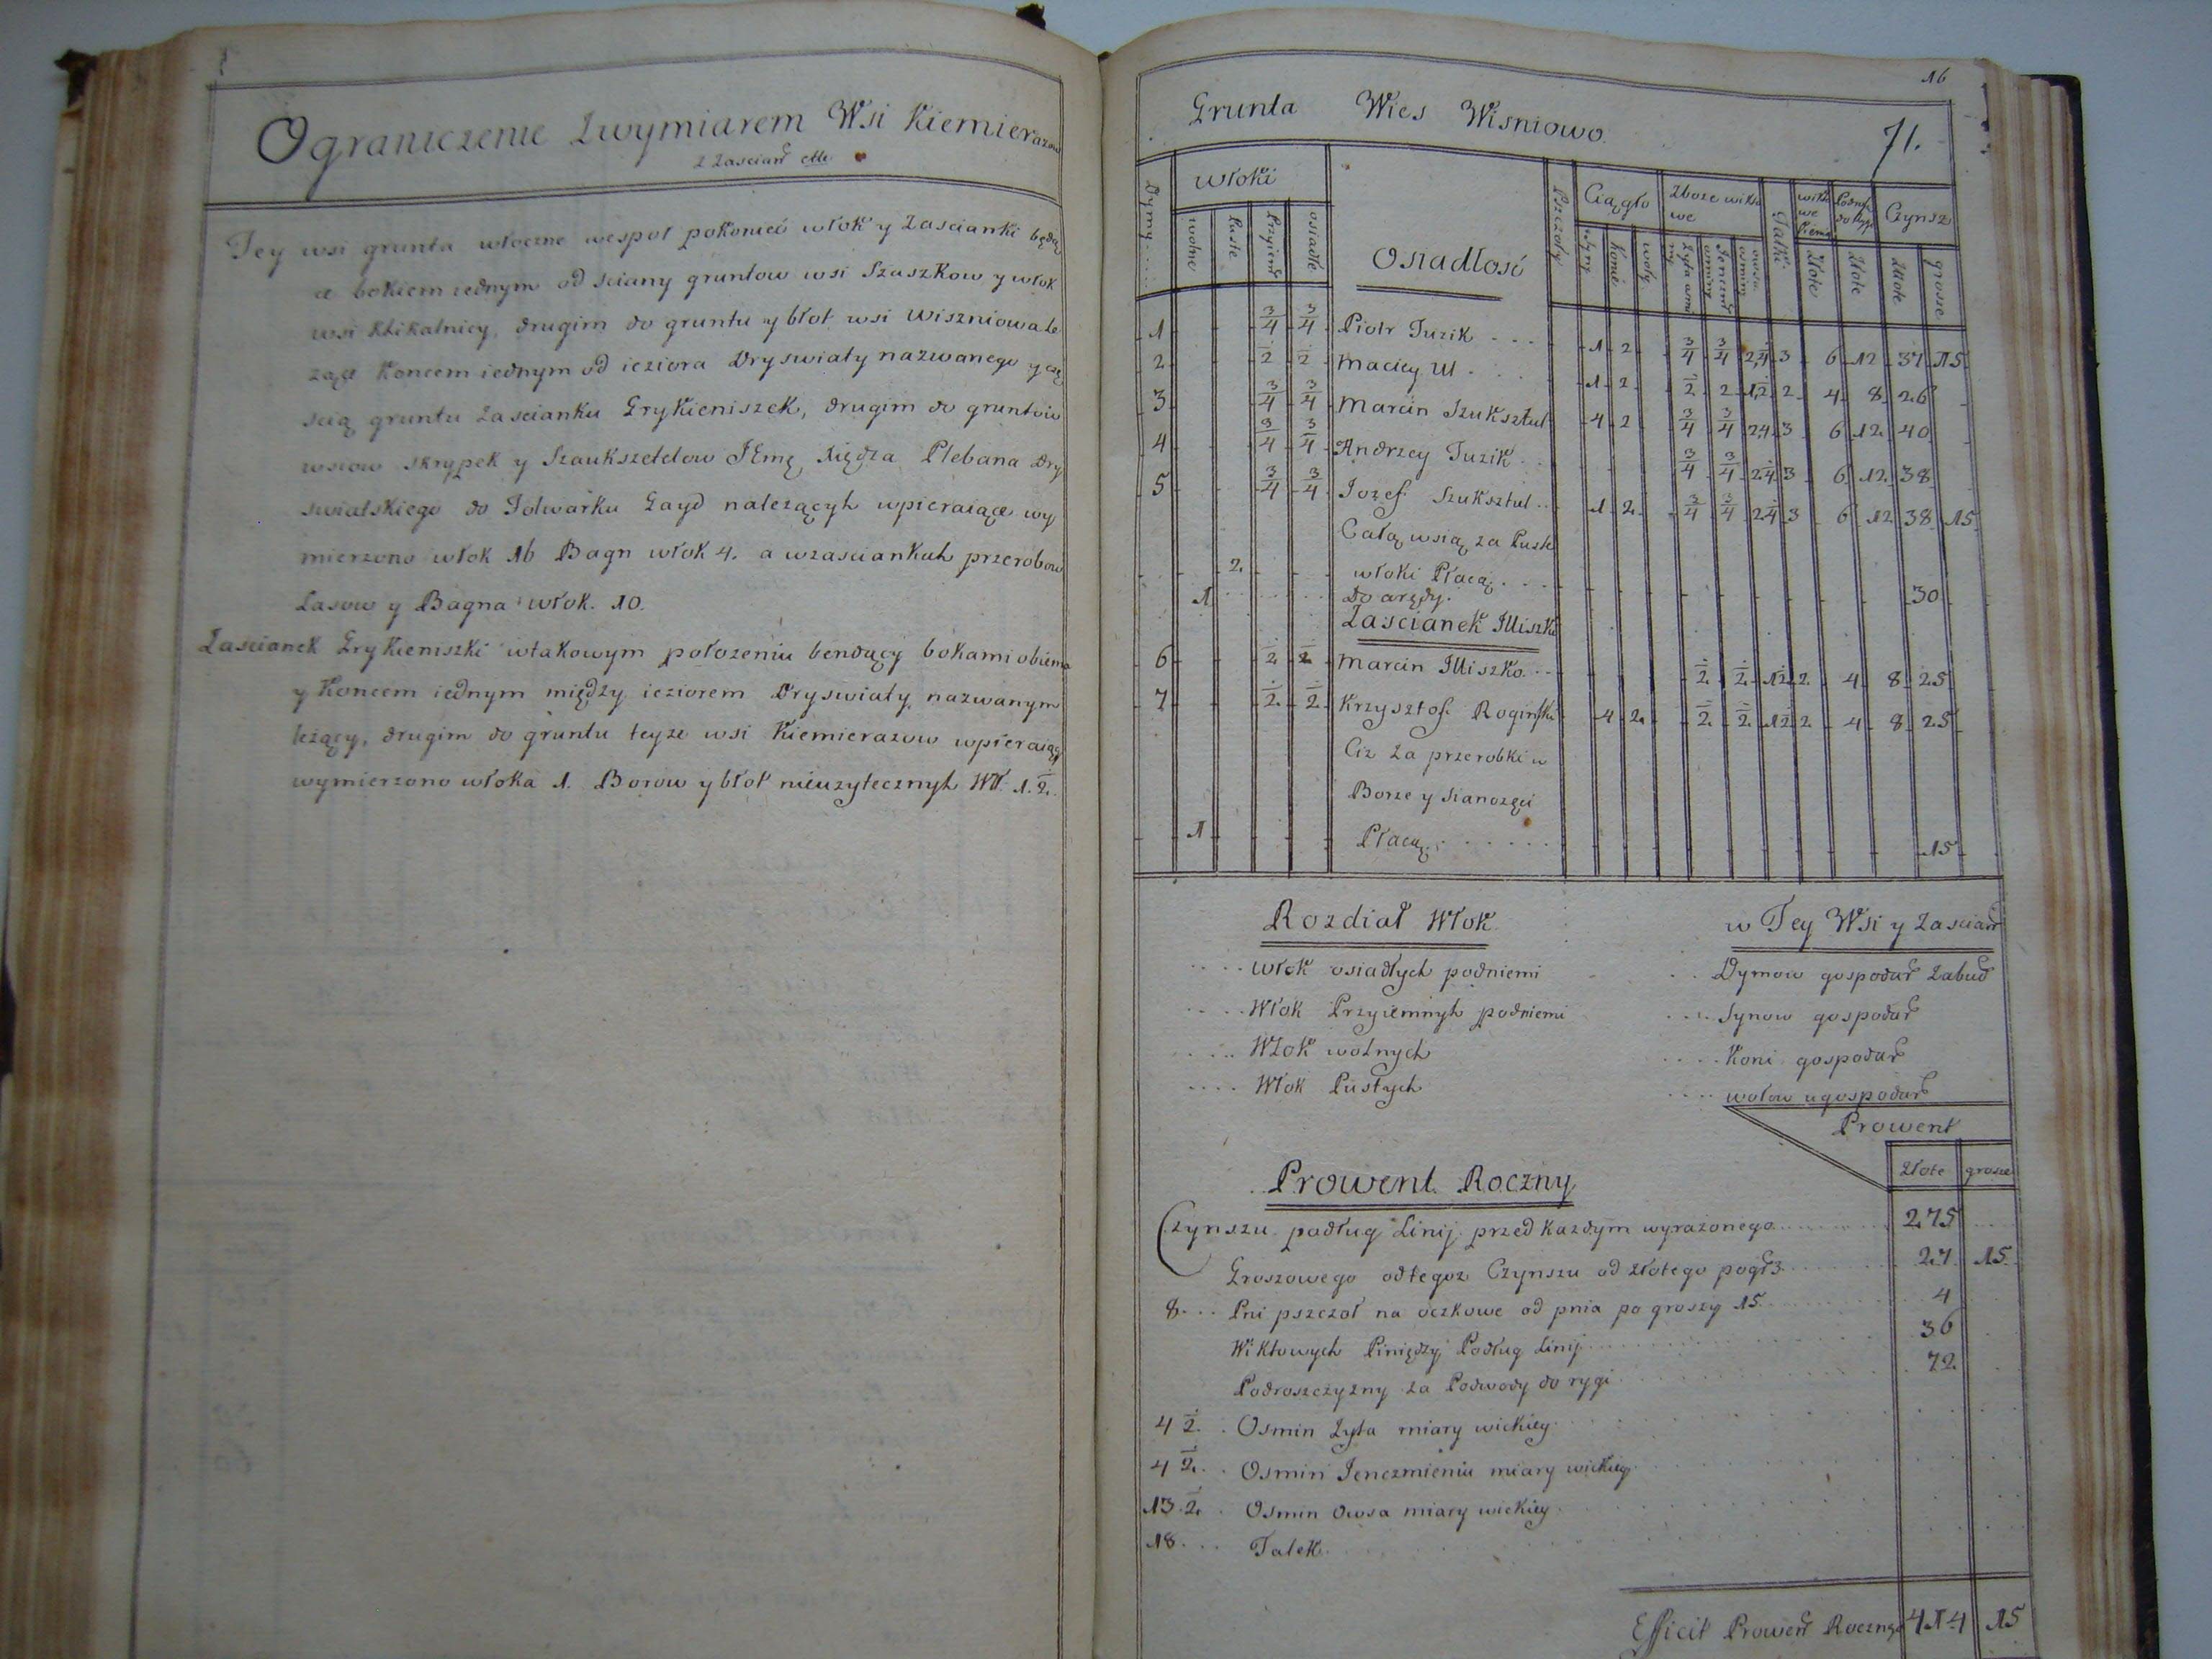 Ograniczenie Zwymiarem Wsi Kiemierazow
z Zascian ctte
Tey wsi grunta włoczne wespoł pokoncu włok y Zascianki będą
ce bokiem iednym od sciany gruntow wsi Szaszkow y włok
wsi Klikalnicy, drugim do gruntu y błot wsi Wiszniowa le
zące Koncem iednym od ieziora Dryswiaty nazwanego y czę
scią gruntu Zascianku Grykieniszek, drugim do gruntow
wsiow skrypek y Szaukszdelow JEmę Xiędza Plebana Dry
swiatskiego do Folwarku Gayd nalezących wpieraiące wy
mierzono włok 16 Bagn włok 4. a wzasciankach przerobow
Lasow y Bagna włok. 10.
Zascianek Grykieniszki wtakowym połozeniu bendący bokami obiema
y Koncem iednym między ieziorem Dryswiaty nazwanym
leżący, drugim do gruntu teyze wsi Kiemierazow wpieraiący
wymierzono włoka 1. Borow y błot nieuzytecznych Wł. 1.2.
16
Grunta Wies Wisniowo 71.
Dymy włoki Osiadłosć Pszczoły Ciągło Zboze wikto we Talki wikto we Pienią Czynsz
wolne Puste Przyiem osiadłe Syny konie woły Złote Złote Złote grosze
1 3/4 3/4 Piotr Tuzik 1 2 3/4 3/4 2,1/4 3 6 12 37 15
2 1/2 1/2 Maciey Ul 1 2 1/2 2 1,1/2 2 4 8 26
3 3/4 3/4 Marcin Szuksztul 4 2 3/4 3/4 2,1/4 3 6 12 40
4 3/4 3/4 Andrzey Tuzik 3/4 3/4 2,1/4 3 6 12 38
5 3/4 3/4 Jozef Szuksztul 1 2 3/4 3/4 2,1/4 3 6 12 38 15
Całą wsią za Puste
2 włoki Płacą 30
1 Do arędy.
Zascianek Miszki
6 1/2 1/2 Marcin Miszko 1/2 1/2 1 1/2 2 4 8 25
7 1/2 1/2 Krzysztof Roginski 4 2 1/2 1/2 1 1/2 2 4 8 25
Ciz za przerobki w
Borze y sianozęci
1 Płacą 15
Rozdiał Włok w Tey Wsi y Zascian
Włok osiadłych podniemi Dymow gospodar Zabud
Włok Przyiemnych podniemi Synow gospodar
Włok wolnych Koni gospodar
Włok Pustych wołow u gospodar
Prowent
Złote grosze
Prowent Roczny
Czynszu podług Linij przed kazdym wyrażonego 275
Groszowego odtegoz Czynszu od złotego pogr 3 27 15
8 Pni pszczoł na oczkowe od pnia po groszy 15 4
Wiktowych Piniędzy Podług Linij 36
Podroszczyzny za Podwody do rygi 72
4 1/2 Osmin Zyta miary wickiey
4 1/2 Osmin Jenczmieniu miary wickiey
13 1/2 Osmin Owsa miary wickiey
18 Talek
Efficit Prowen Roczngo 414 15